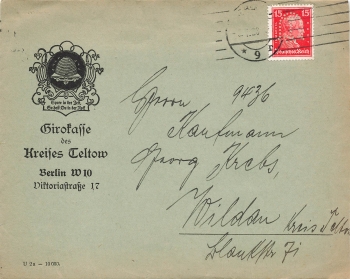 15 15
Deutsches Reich
* 9
Spare in der Zeit,
So hast Du in der Not
Girokasse
des
Kreises Teltow
Berlin W 10
Viktoriastraße 17
Herrn 9436
Kaufmann
Georg Krebs,
Wildau Kreis Teltow
71